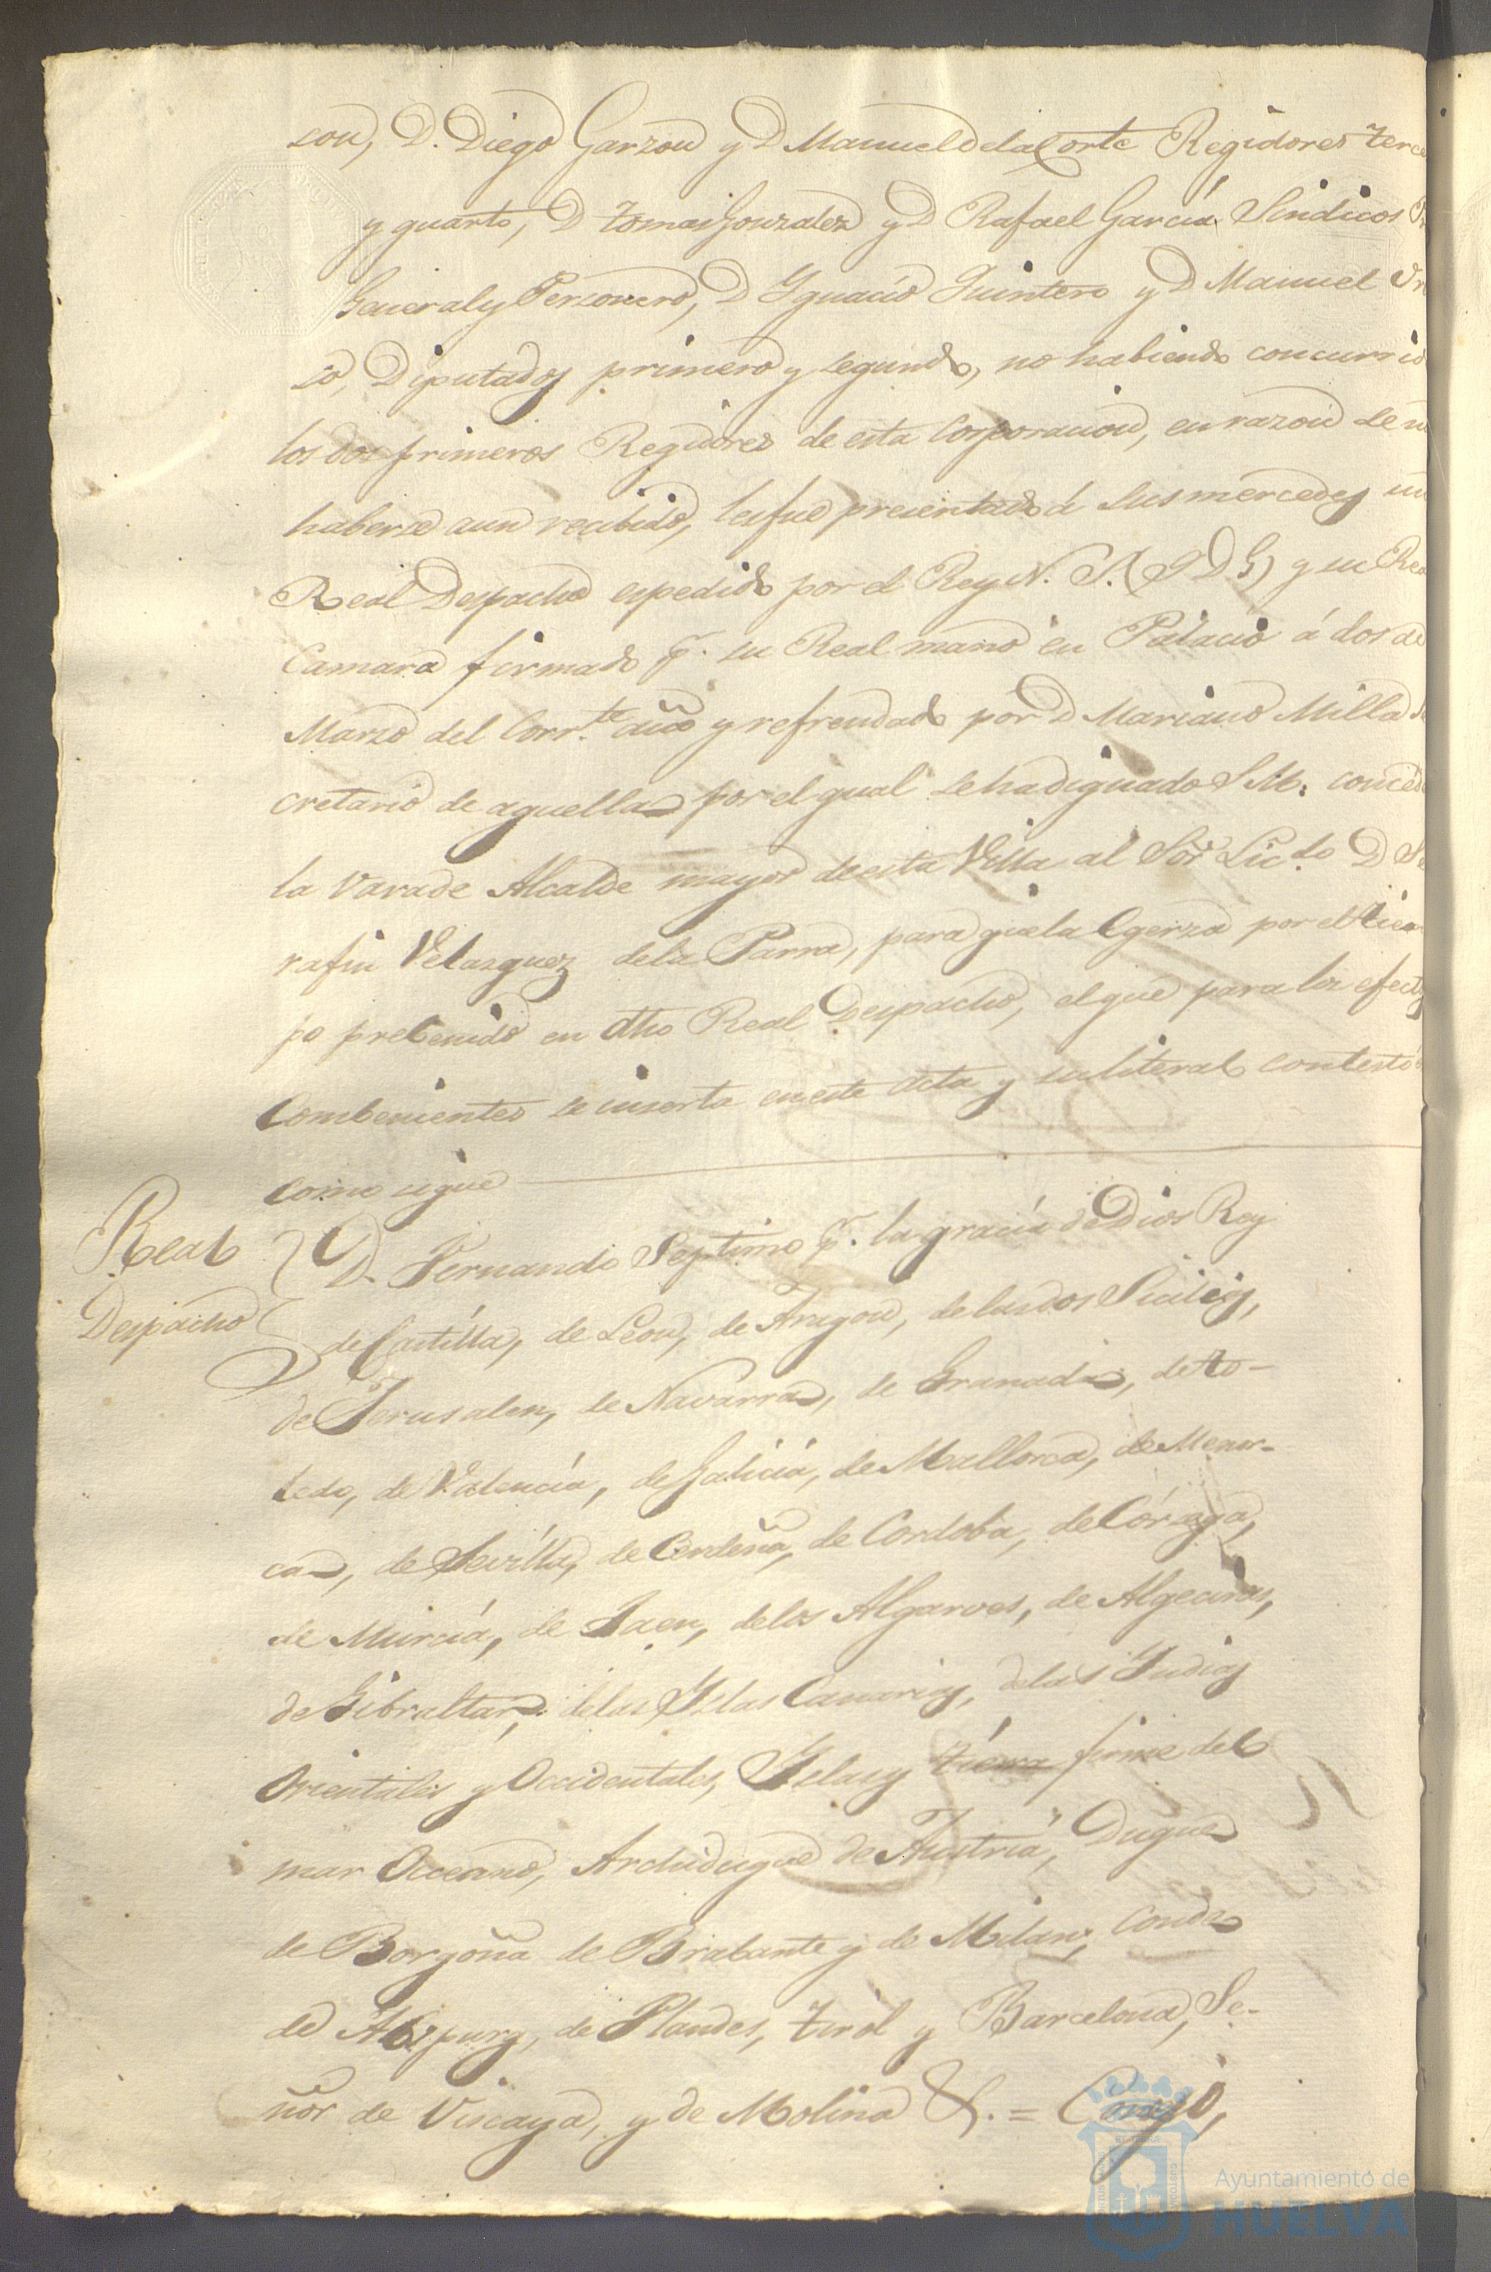 son, D. Diego Garzon y D Manuel de la Corte Regidores terce
y quarto, D Tomas Gonzalez y D Rafael García Sindicos
General y Personero, D Ygnacio Quintero y D Manuel
so, Diputados primero y segundo, no habiendo concurrido
los dos primeros Regidores de esta Corporacion, en razon de no
haberse aun recibido, les fue presentado á sus mercedes un
Real Despacho espedido por el Rey N. S. (Q D G) y su Rea
Camara firmado p.r su Real mano en Palacio á dos de
Marzo del Corr.te año y refrendado por D Mariano Milla Se
cretario de aquella por el qual se ha dignado S M. conced
la Vara de Alcalde mayor de esta Villa al Sor Lic.do D Se
rafin Velasquez de la Parra, para que la egerza por el tiem
po prebenido en dho Real Despacho, el que para los efectos
Combenientes se inserta en este acta y su literal contesto
como sigue
Real
Despacho
D. Fernando Septimo p.r la gracia de Dios Rey
de Castilla, de Leon, de Aragon, de las dos Sicilias,
de Jerusalen, de Navarra, de Granada, de To-
ledo, de Valencia, de Galicia, de Mallorca, de Menor-
ca, de Sevilla, de Cerdeña, de Cordoba, de Córcega,
de Murcia, de Jaen, de los Algarves, de Algeciras,
de Gibraltar, de las Yslas Canarias, de las Yndias
Orientales y Occidentales, Yslas y tierra firme del
mar Occeano, Archiduque de Austria, Duque
de Borgoña de Brabante y de Milan, Conde
de Abspurg, de Flandes, Tirol y Barcelona, Se-
ñor de Viscaya, y de Molina &. =
Ayuntamiento de
HUELVA